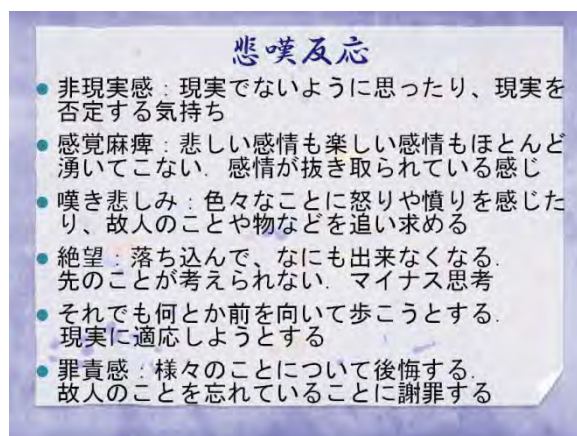 悲嘆反応
● 非現実感：現実でないように思ったり、現実を
否定する気持ち
● 感覚麻痺：悲しい感情も楽しい感情もほとんど
湧いてこない．感情が抜き取られている感じ
● 嘆き悲しみ：色々なことに怒りや憤りを感じた
り、故人のことや物などを追い求める
● 絶望：落ち込んで、なにも出来なくなる．
先のことが考えられない．マイナス思考
● それでも何とか前を向いて歩こうとする．
現実に適応しようとする
● 罪責感：様々のことについて後悔する．
故人のことを忘れていることに謝罪する